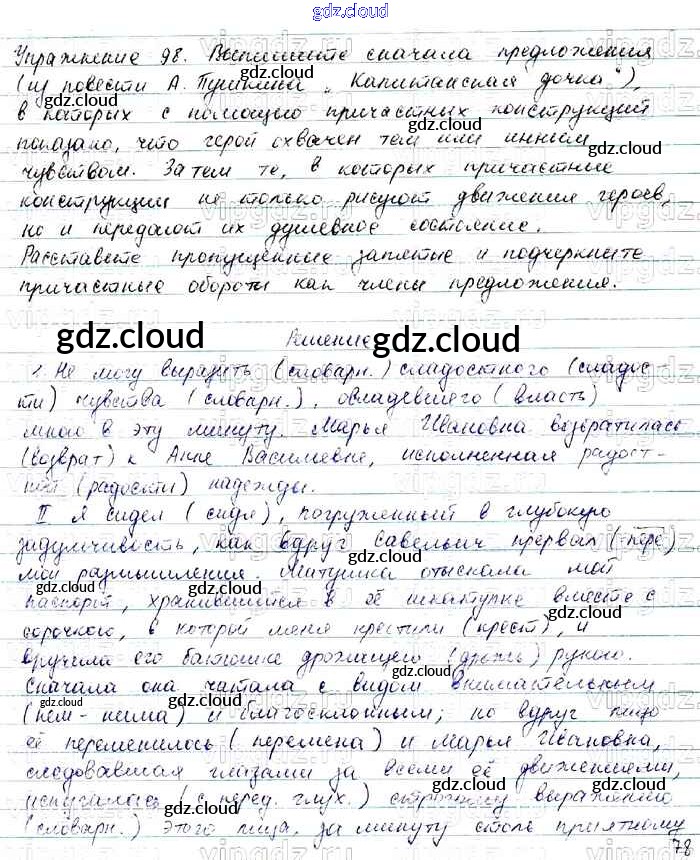 gdz.cloud
Упражнение 98. Выпишите сначала предложения
(из повести А. Пушкина „Капитанская дочка"),
в которых с помощью причастных конструкций
показано, что герой охвачен тем или иным
чувством. Затем те, в которых причастные
конструкции не только рисуют движения героев,
но и передают их душевное состояние.
Расставьте пропущенные запятые и подчеркните
причастные обороты как члены предложения.
Решение
1. Не могу выразить (словарн.) сладостного (сладос-
ти) чувства (словарн.), овладевшего (власть)
мною в эту минуту. Марья Ивановна возвратилась
(возврат) к Анне Васильевне, исполненная радост-
ной (радости) надежды.
II Я сидел (сидя), погруженный в глубокую
задумчивость, как вдруг Савельич прервал (-пере)
мои размышления. Матушка отыскала мой
паспорт, хранившийся в её шкатулке вместе с
сорочкою, в которой меня крестили (крест), и
вручила его батюшке дрожащею (дрожь) рукою.
Сначала она читала с видом внимательным
(нем-нима) и благосклонным; но вдруг лицо
её переменилось (перемена) и Марья Ивановна,
следовавшая глазами за всеми её движениями,
испугалась (с перед. глух.) строгому выражению
(словарн.) этого лица, за минуту столь приятному
78